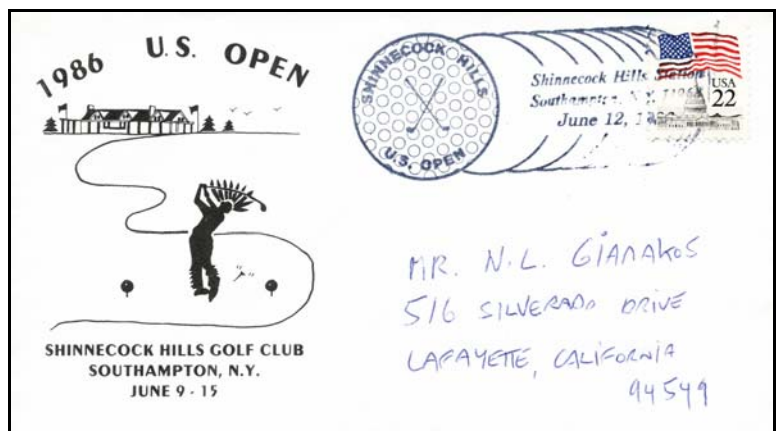 1986 U.S. OPEN
SHINNECOCK HILLS GOLF CLUB
SOUTHAMPTON, N.Y.
JUNE 9 - 15
SHINNECOCK HILLS
U.S. OPEN
Shinnecock Hills Station
Southampton, N.Y.
June 12,
USA
22
MR. N.L. GIANAKOS
516 SILVERADO DRIVE
LAFAYETTE, CALIFORNIA
94549